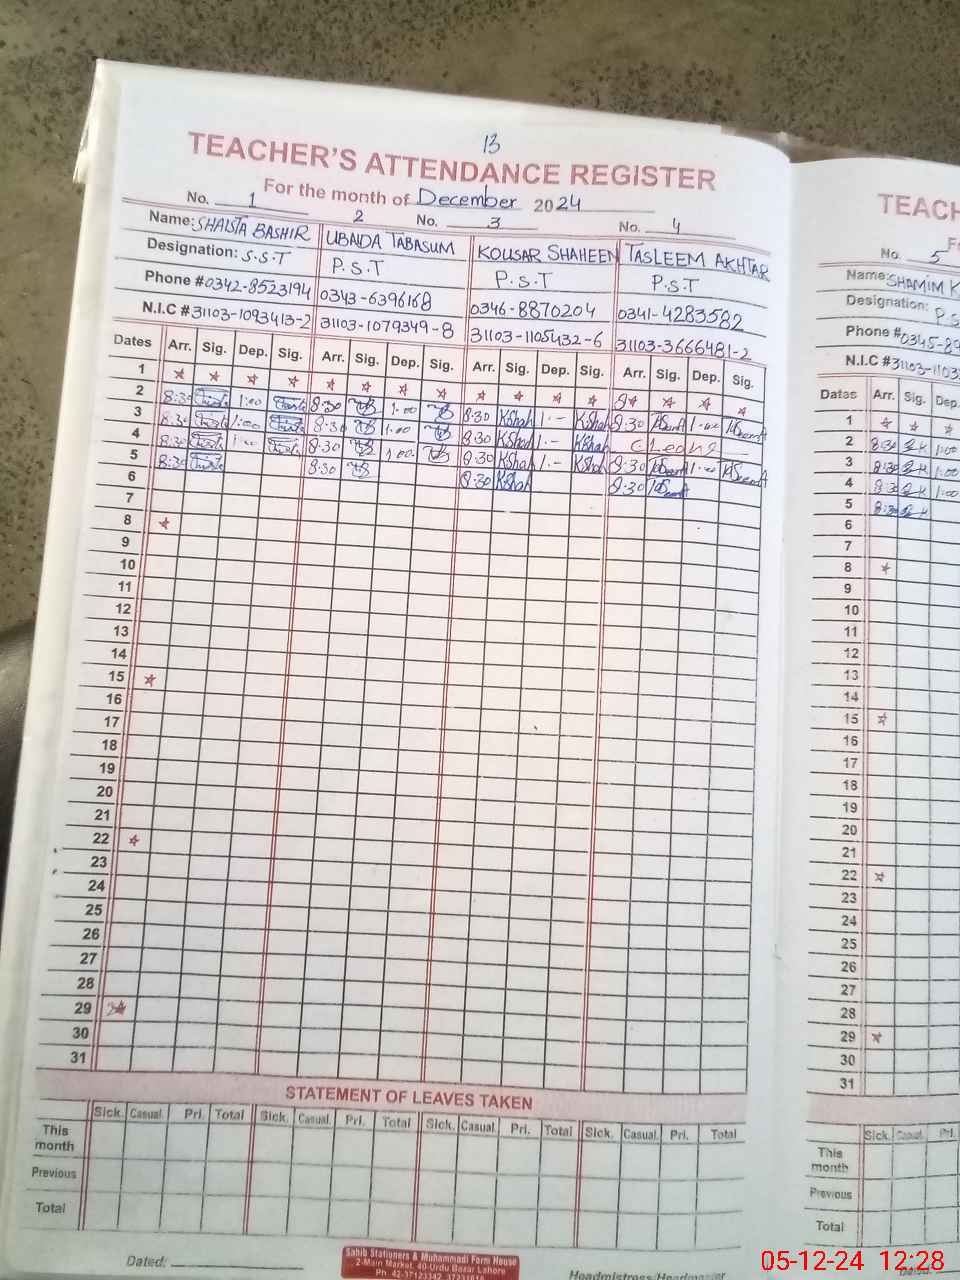 13
TEACHER'S ATTENDANCE REGISTER
For the month of December 2024
No. 1 2 No. 3 No. 4
Name: SHAISTA BASHIR UBAIDA TABASUM KOUSAR SHAHEEN TASLEEM AKHTAR
Designation: S.S.T P.S.T P.S.T P.S.T
Phone # 0342-8523194 0343-6396168 0346-8870204 0341-4283582
N.I.C # 31103-1093413-2 31103-1079349-8 31103-1105432-6 31103-3666481-2
Dates Arr. Sig. Dep. Sig. Arr. Sig. Dep. Sig. Arr. Sig. Dep. Sig. Arr. Sig. Dep. Sig.
1
2 8:30 1:00 8:30 1:00 8:30 KShah 1:- KShah 8:30 1:00
3 8:30 1:00 8:30 1:00 8:30 KShah 1:- KShah
4 8:30 1:00 8:30 1:00 8:30 KShah 1:- KShah 8:30 1:00
5 8:30 8:30 8:30 KShah 8:30
6
7
8
9
10
11
12
13
14
15
16
17
18
19
20
21
22
23
24
25
26
27
28
29
30
31
STATEMENT OF LEAVES TAKEN
Sick. Casual. Pri. Total Sick. Casual. Pri. Total Sick. Casual. Pri. Total Sick. Casual. Pri. Total
This month
Previous
Total
Dated:
Sahib Stationers & Muhammadi Form House
2-Main Market, 40-Urdu Bazar Lahore
Ph: 42-37123342
Headmistress/Headmaster
TEACH
No. 5
Name: SHAMIM K
Designation: P.S
Phone # 0345-89
N.I.C # 31103-1103
Dates Arr. Sig. Dep.
1
2 8:30 1:00
3 8:30 1:00
4 8:30 1:00
5 8:30
6
7
8
9
10
11
12
13
14
15
16
17
18
19
20
21
22
23
24
25
26
27
28
29
30
31
Sick. Casual. Pri.
This month
Previous
Total
05-12-24 12:28